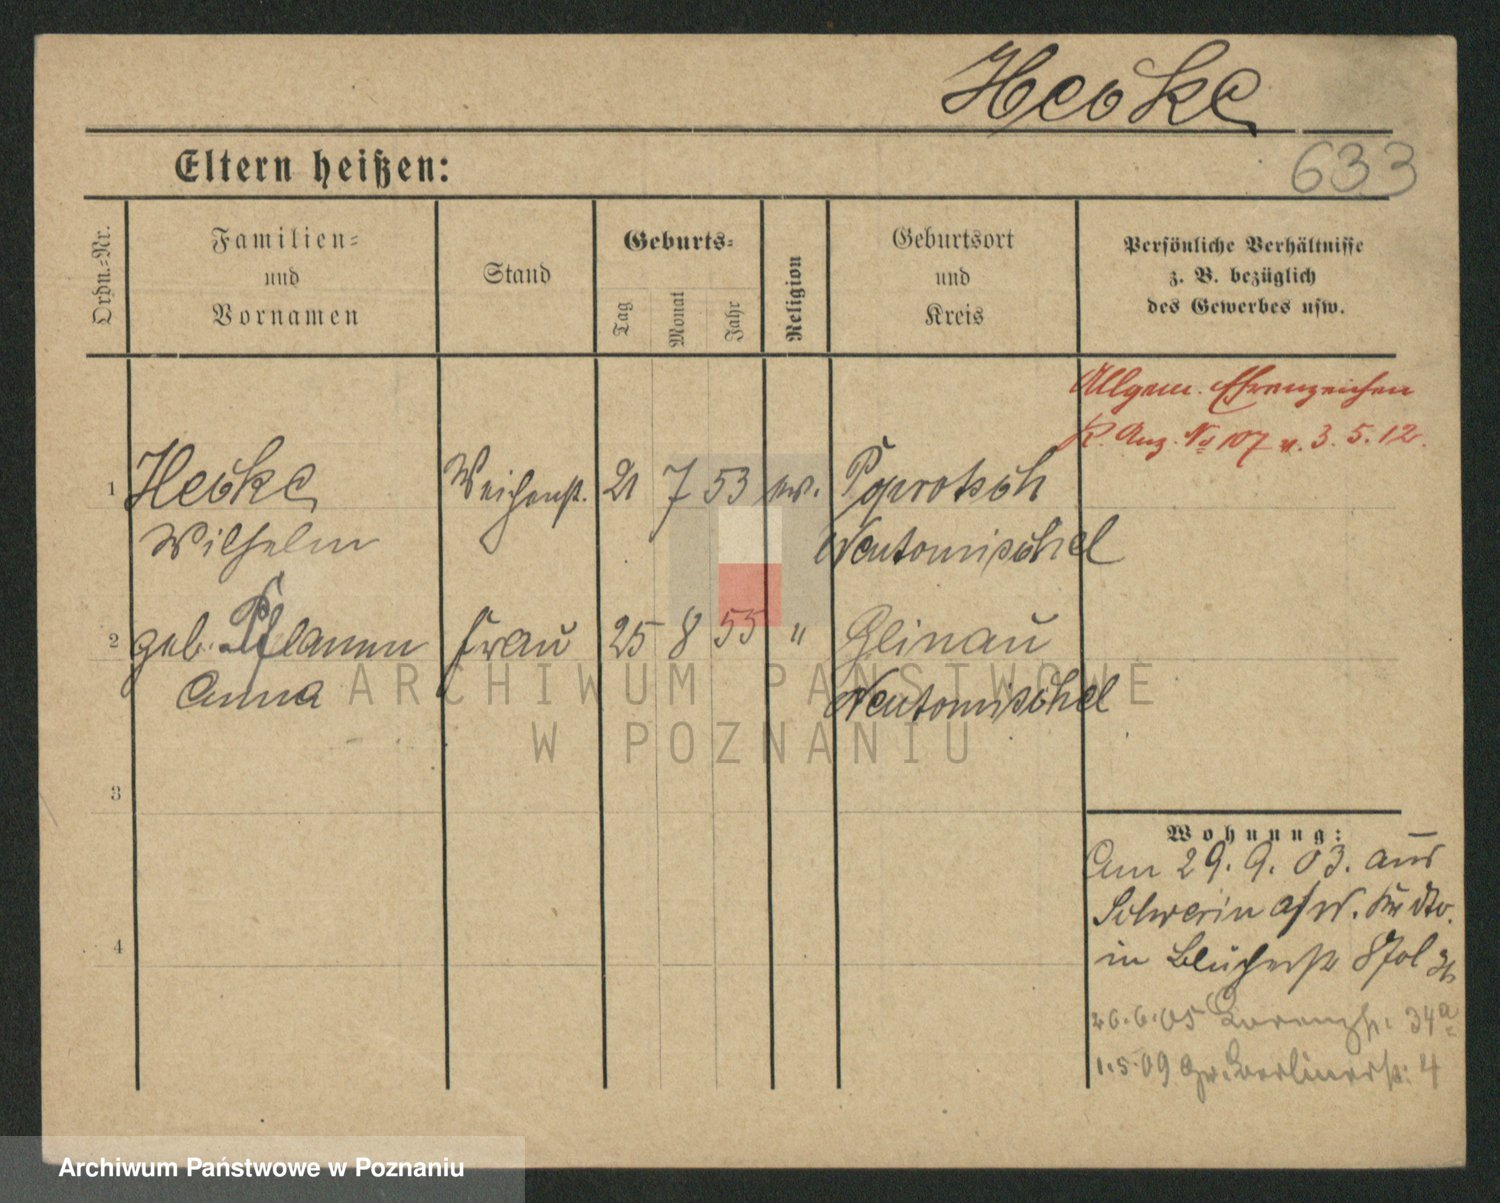 Heske
633
Eltern heißen:
Ordn.-Nr.
Familien-
und
Vornamen
Stand
Geburts-
Tag
Monat
Jahr
Religion
Geburtsort
und
Kreis
Persönliche Verhältnisse
z. B. bezüglich
des Gewerbes usw.
Allgem. Ehrenzeichen
R. Anz. No 107 v. 3. 5. 12.
1 Heske Weichenst. 21 7 53 ev. Paprotsch
Wilhelm Neutomischel
2 geb. Pflaumn Frau 25 8 55 " Glinau
Anna Neutomischel
ARCHIWUM PAŃSTWOWE
W POZNANIU
3
Wohnung:
Am 29. 9. 03. aus
Schwerin a/W. Kr dto.
4
in Blücherstr 8
26.6.05 Lorenzstr. 34a
1.5.09 Gr. Berlinerstr: 4
Archiwum Państwowe w Poznaniu